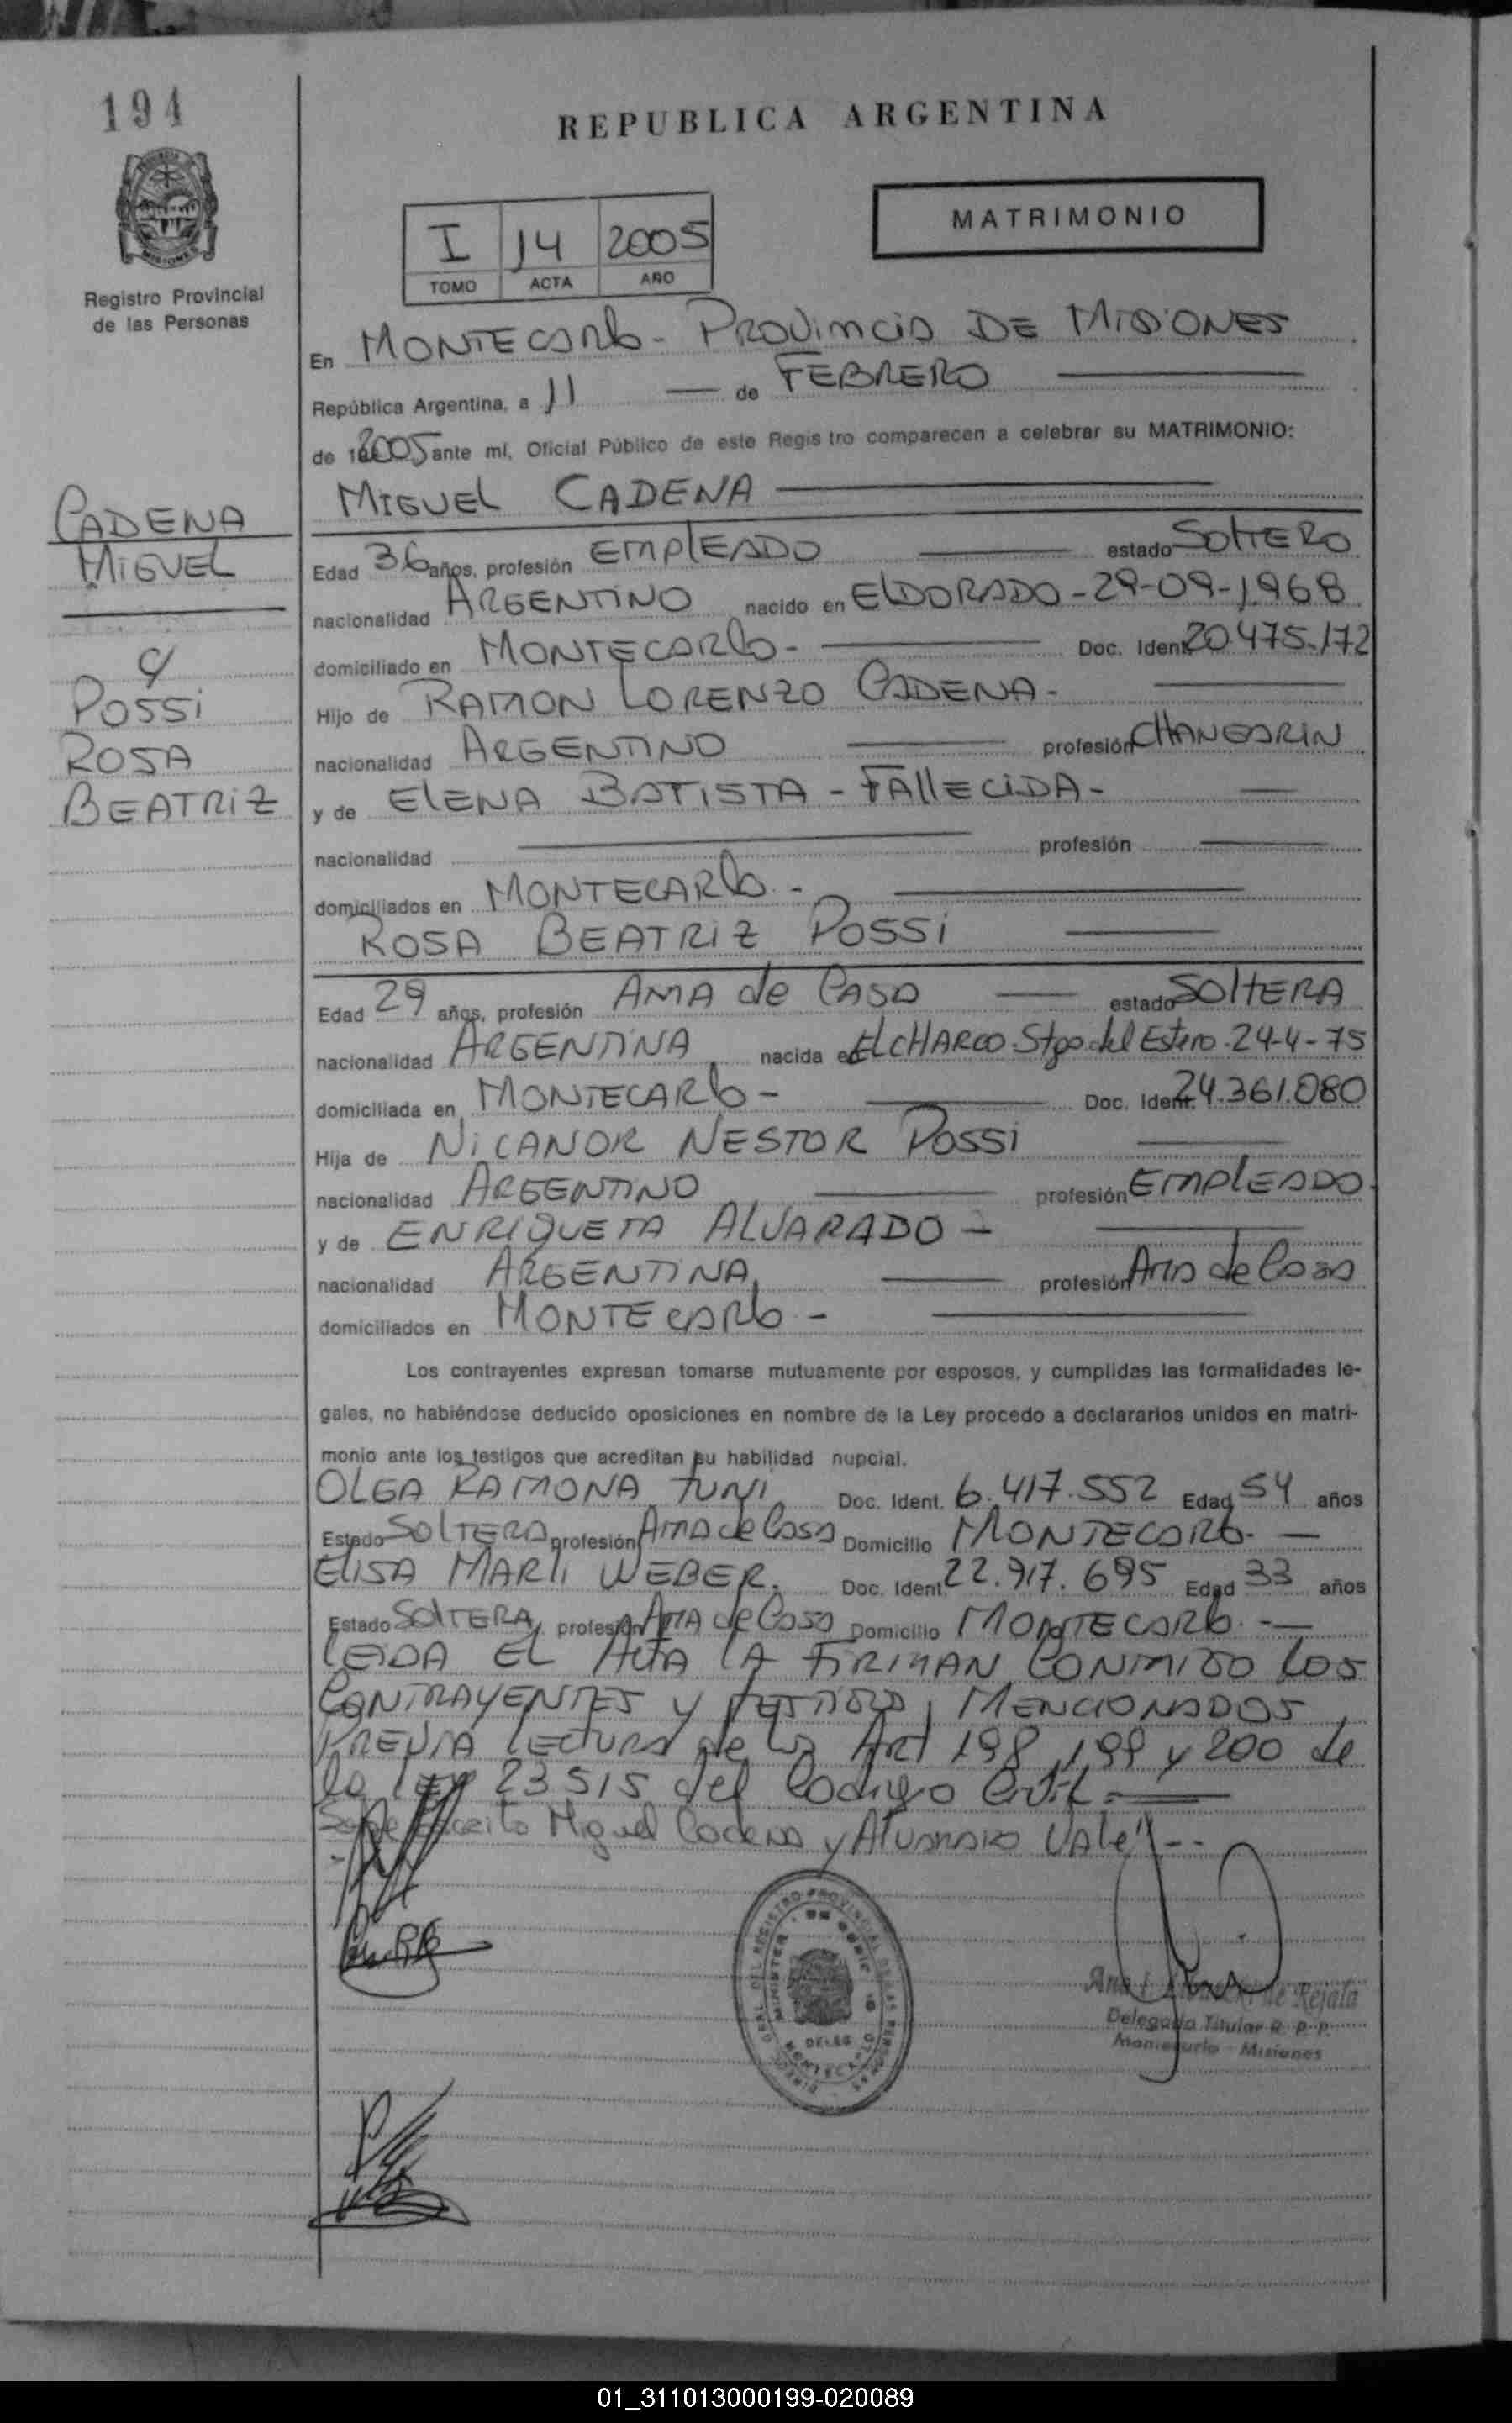 194
REPUBLICA ARGENTINA
I 14 2005
TOMO ACTA AÑO
MATRIMONIO
Registro Provincial
de las Personas
En MONTECARLO - PROVINCIA DE MISIONES
República Argentina, a 11 — de FEBRERO
de 2005 ante mí, Oficial Público de este Registro comparecen a celebrar su MATRIMONIO:
MIGUEL CADENA
CADENA
MIGUEL
Edad 36 años, profesión EMPLEADO estado SOLTERO
nacionalidad ARGENTINO nacido en ELDORADO - 29-09-1968
domiciliado en MONTECARLO - Doc. Ident. 20.475.172
c/
POSSI
ROSA
BEATRIZ
Hijo de RAMON LORENZO CADENA -
nacionalidad ARGENTINO profesión CHANGARIN
y de ELENA BATISTA - FALLECIDA -
nacionalidad profesión
domiciliados en MONTECARLO -
ROSA BEATRIZ POSSI
Edad 29 años, profesión AMA de CASA estado SOLTERA
nacionalidad ARGENTINA nacida en EL CHARCO Stgo. del Estero - 24-4-75
domiciliada en MONTECARLO - Doc. Ident. 24.361.080
Hija de NICANOR NESTOR POSSI
nacionalidad ARGENTINO profesión EMPLEADO -
y de ENRIQUETA ALVARADO -
nacionalidad ARGENTINA profesión AMA de CASA
domiciliados en MONTECARLO -
Los contrayentes expresan tomarse mutuamente por esposos, y cumplidas las formalidades le-
gales, no habiéndose deducido oposiciones en nombre de la Ley procedo a declararlos unidos en matri-
monio ante los testigos que acreditan su habilidad nupcial.
OLGA RAMONA Doc. Ident. 6.417.552 Edad 54 años
Estado SOLTERA profesión AMA de CASA Domicilio MONTECARLO -
ELISA MARLI WEBER. Doc. Ident. 22.917.695 Edad 33 años
Estado SOLTERA, profesión AMA de CASA Domicilio MONTECARLO -
LEIDA EL ACTA LA FIRMAN CONMIGO LOS
CONTRAYENTES Y TESTIGOS, MENCIONADOS
PREVIA LECTURA de los Art 198, 199 y 200 de
la ley 23515 del Codigo Civil. -
Miguel Cadena y ALVARADO VALE" --
Ana de Rejala
Delegada Titular R. P. P.
Montecarlo - Misiones
01_311013000199-020089